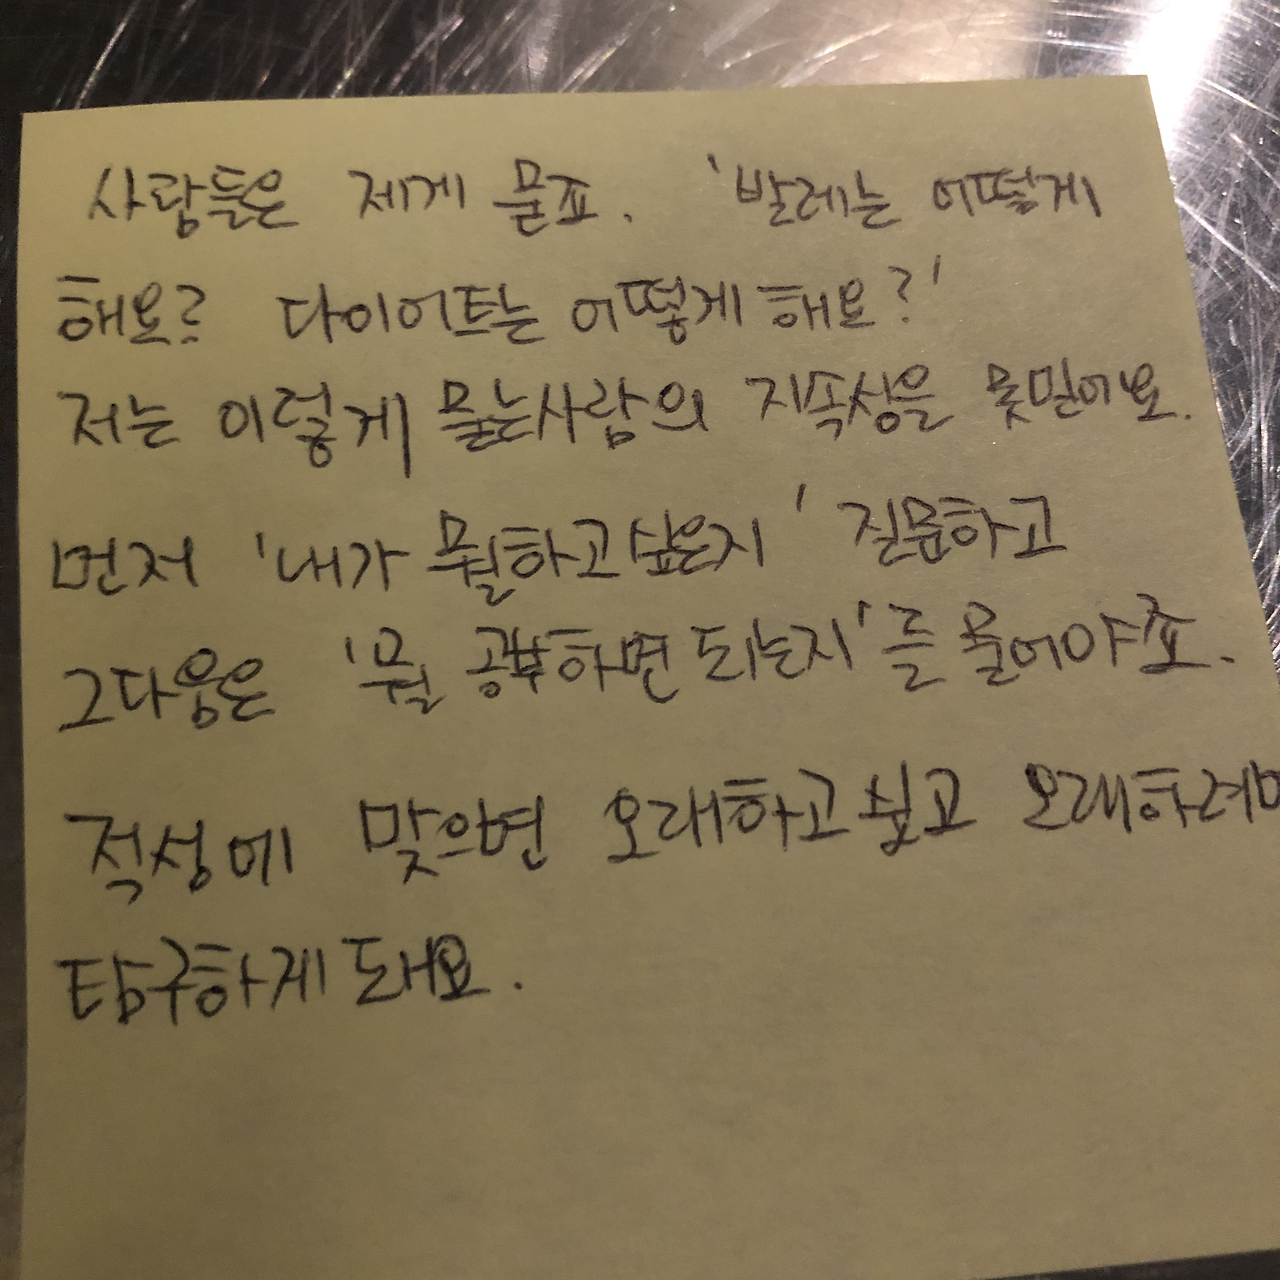 사람들은 제게 물죠. '발레는 어떻게
해요? 다이어트는 어떻게 해요?'
저는 이렇게 묻는사람의 지속성을 못믿어요.
먼저 '내가 뭘하고싶은지' 질문하고
그다음은 '뭘 공부하면 되는지'를 물어야죠.
적성에 맞으면 오래하고싶고 오래하려면
탐구하게 돼요.